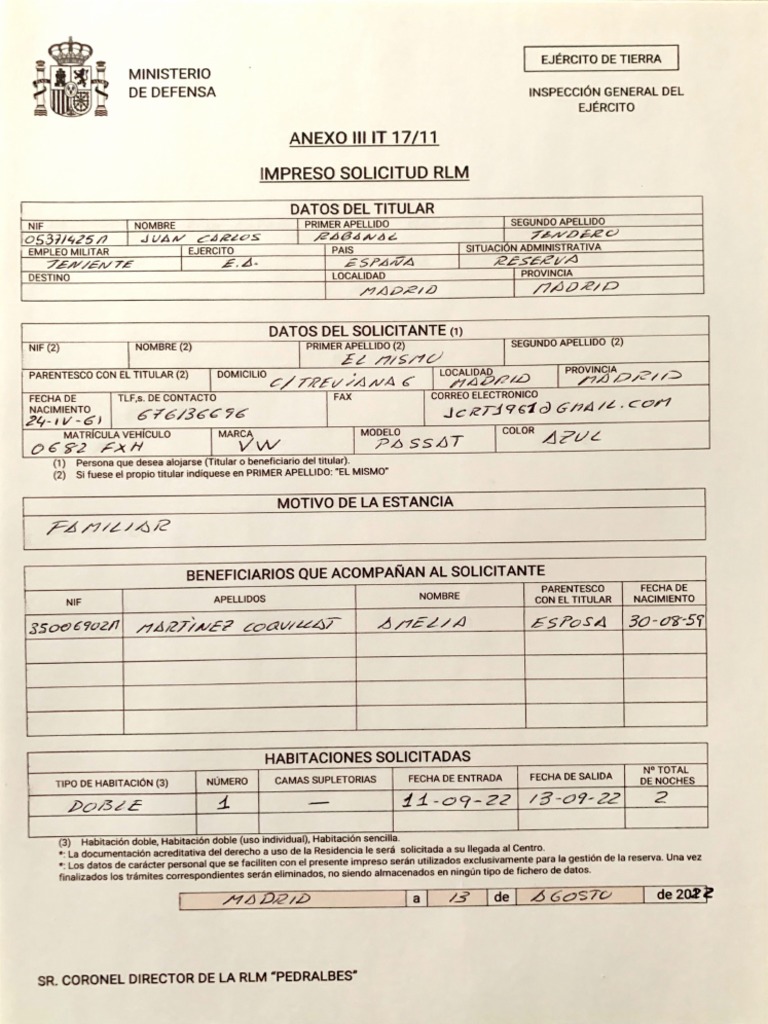 MINISTERIO
DE DEFENSA
EJÉRCITO DE TIERRA
INSPECCIÓN GENERAL DEL
EJÉRCITO
ANEXO III IT 17/11
IMPRESO SOLICITUD RLM
DATOS DEL TITULAR
NIF NOMBRE PRIMER APELLIDO SEGUNDO APELLIDO
05371425M JUAN CARLOS RABANAL TENDERO
EMPLEO MILITAR EJERCITO PAIS SITUACIÓN ADMINISTRATIVA
TENIENTE E.A. ESPAÑA RESERVA
DESTINO LOCALIDAD PROVINCIA
MADRID MADRID
DATOS DEL SOLICITANTE (1)
NIF (2) NOMBRE (2) PRIMER APELLIDO (2) SEGUNDO APELLIDO (2)
EL MISMO
PARENTESCO CON EL TITULAR (2) DOMICILIO C/TREVIANA 6 LOCALIDAD MADRID PROVINCIA MADRID
FECHA DE NACIMIENTO TLF,s. DE CONTACTO FAX CORREO ELECTRONICO
24-IV-61 676136696 JCRT1961@GMAIL.COM
MATRÍCULA VEHÍCULO MARCA MODELO COLOR
0682 FXH VW PASSAT AZUL
(1) Persona que desea alojarse (Titular o beneficiario del titular).
(2) Si fuese el propio titular indiquese en PRIMER APELLIDO: "EL MISMO"
MOTIVO DE LA ESTANCIA
FAMILIAR
BENEFICIARIOS QUE ACOMPAÑAN AL SOLICITANTE
NIF APELLIDOS NOMBRE PARENTESCO CON EL TITULAR FECHA DE NACIMIENTO
35006902M MARTÍNEZ COQUILLAT AMELIA ESPOSA 30-08-59
HABITACIONES SOLICITADAS
TIPO DE HABITACIÓN (3) NÚMERO CAMAS SUPLETORIAS FECHA DE ENTRADA FECHA DE SALIDA Nº TOTAL DE NOCHES
DOBLE 1 — 11-09-22 13-09-22 2
(3) Habitación doble, Habitación doble (uso individual), Habitación sencilla.
*: La documentación acreditativa del derecho a uso de la Residencia le será solicitada a su llegada al Centro.
*: Los datos de carácter personal que se faciliten con el presente impreso serán utilizados exclusivamente para la gestión de la reserva. Una vez
finalizados los trámites correspondientes serán eliminados, no siendo almacenados en ningún tipo de fichero de datos.
MADRID a 13 de AGOSTO de 2022
SR. CORONEL DIRECTOR DE LA RLM "PEDRALBES"